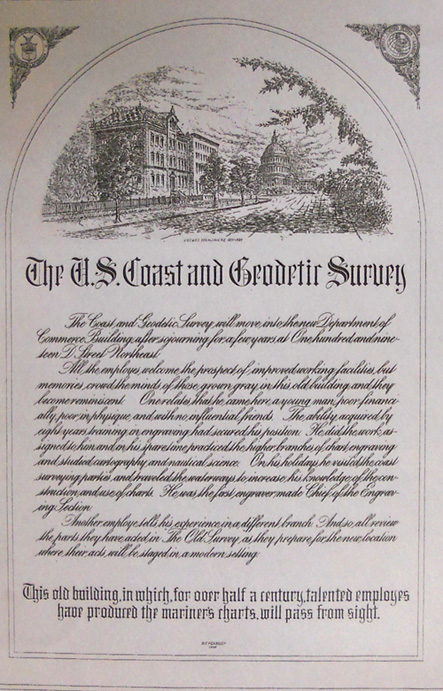 The U.S. Coast and Geodetic Survey
The Coast and Geodetic Survey will move into the new Department of
Commerce Building after sojourning for a few years at One hundred and nine-
teen D. Street Northeast.
All the employes welcome the prospect of improved working facilities, but
memories crowd the minds of those grown gray in this old building and they
become reminiscent. One relates that he came here a young man, poor financi-
ally, poor in physique, and with no influential friends. The ability acquired by
eight years training in engraving had secured his position. He did the work as-
signed to him and in his spare time practiced the higher branches of chart engraving
and studied cartography and nautical science. On his holidays he visited the coast
surveying parties and traveled the waterways to increase his knowledge of the con-
struction and use of charts. He was the first engraver made Chief of the Engrav-
ing Section
Another employe tells his experience in a different branch. And so, all review
the parts they have acted in The Old Survey, as they prepare for the new location
where their acts will be staged in a modern setting
This old building, in which, for over half a century, talented employes
have produced the mariner's charts, will pass from sight.